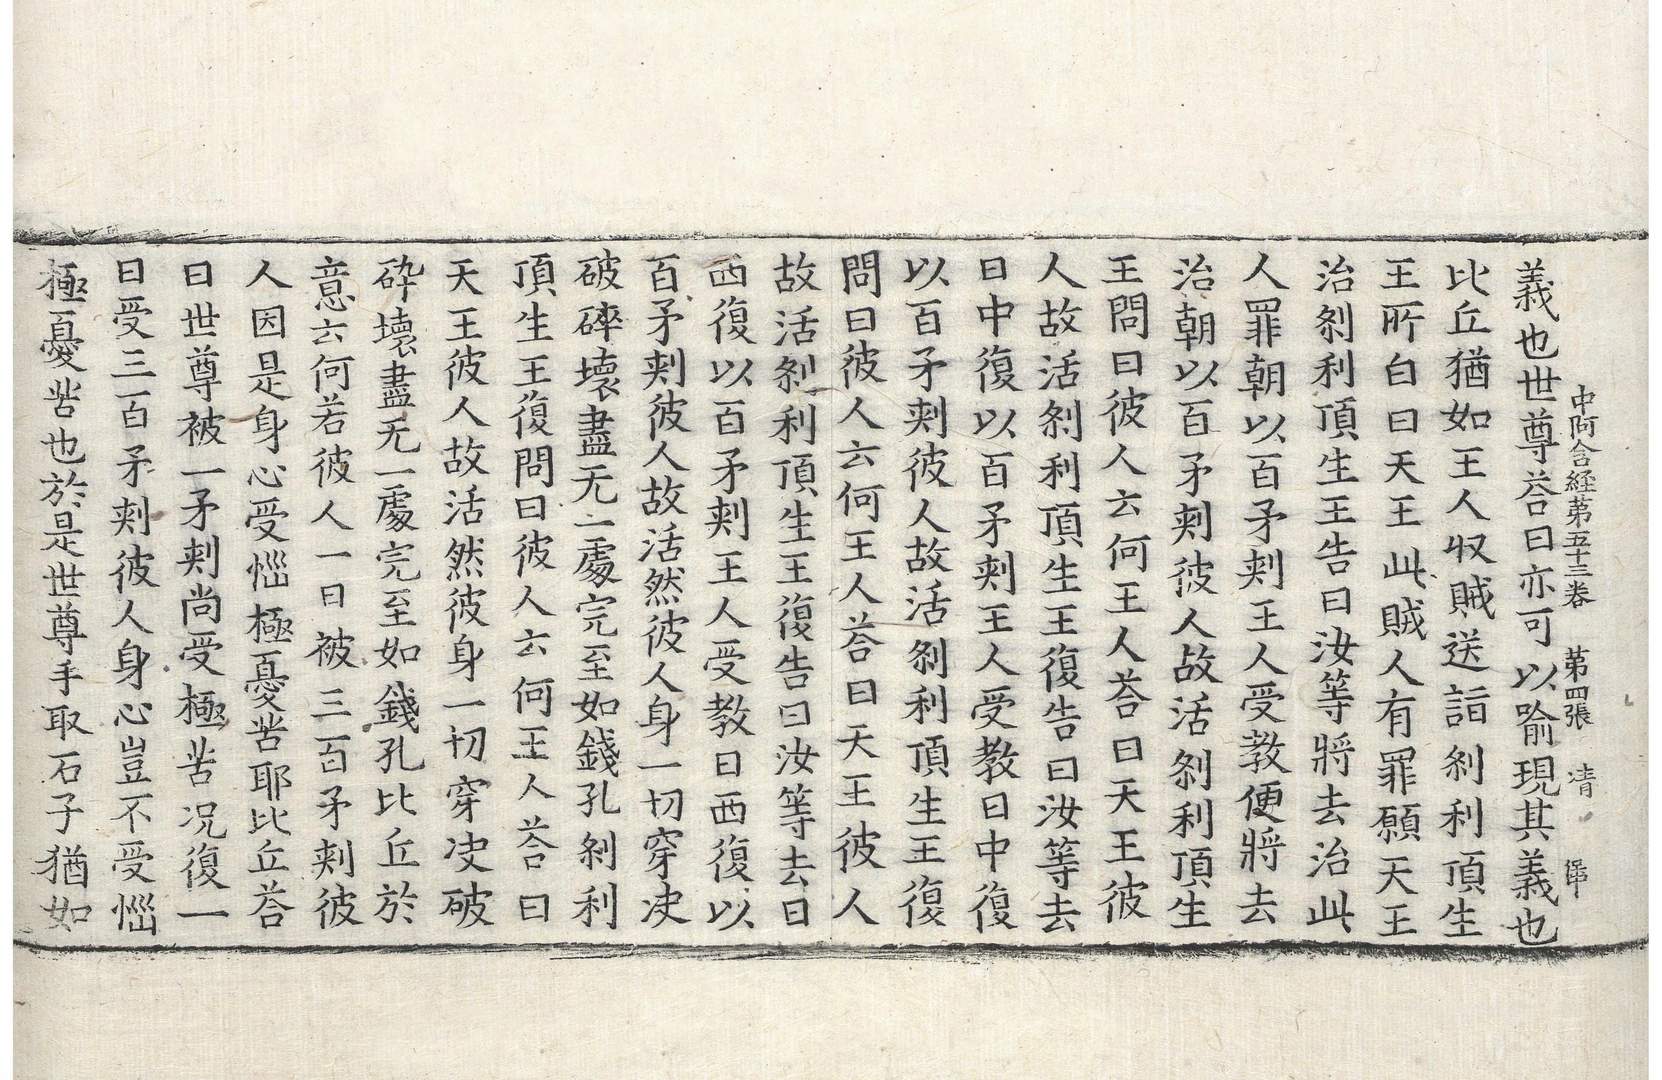 中阿含経第五十三卷　第四張　清
義也世尊荅曰亦可以喻現其義也
比丘猶如王人収賊送詣刹利頂生
王所白曰天王此賊人有罪願天王
治刹利頂生王告曰汝等將去治此
人罪朝以百矛刺王人受教便將去
治朝以百矛刺彼人故活刹利頂生
王問曰彼人云何王人荅曰天王彼
人故活刹利頂生王復告曰汝等去
日中復以百矛刺王人受教日中復
以百矛刺彼人故活刹利頂生王復
問曰彼人云何王人荅曰天王彼人
故活刹利頂生王復告曰汝等去日
西復以百矛刺王人受教日西復以
百矛刺彼人故活然彼人身一切穿决
破碎壞盡无一處完至如錢孔刹利
頂生王復問曰彼人云何王人荅曰
天王彼人故活然彼身一切穿决破
碎壞盡无一處完至如錢孔比丘於
意云何若彼人一日被三百矛刺彼
人因是身心受惱極憂苦耶比丘荅
曰世尊被一矛刺尚受極苦况復一
日受三百矛刺彼人身心豈不受惱
極憂苦也於是世尊手取石子猶如